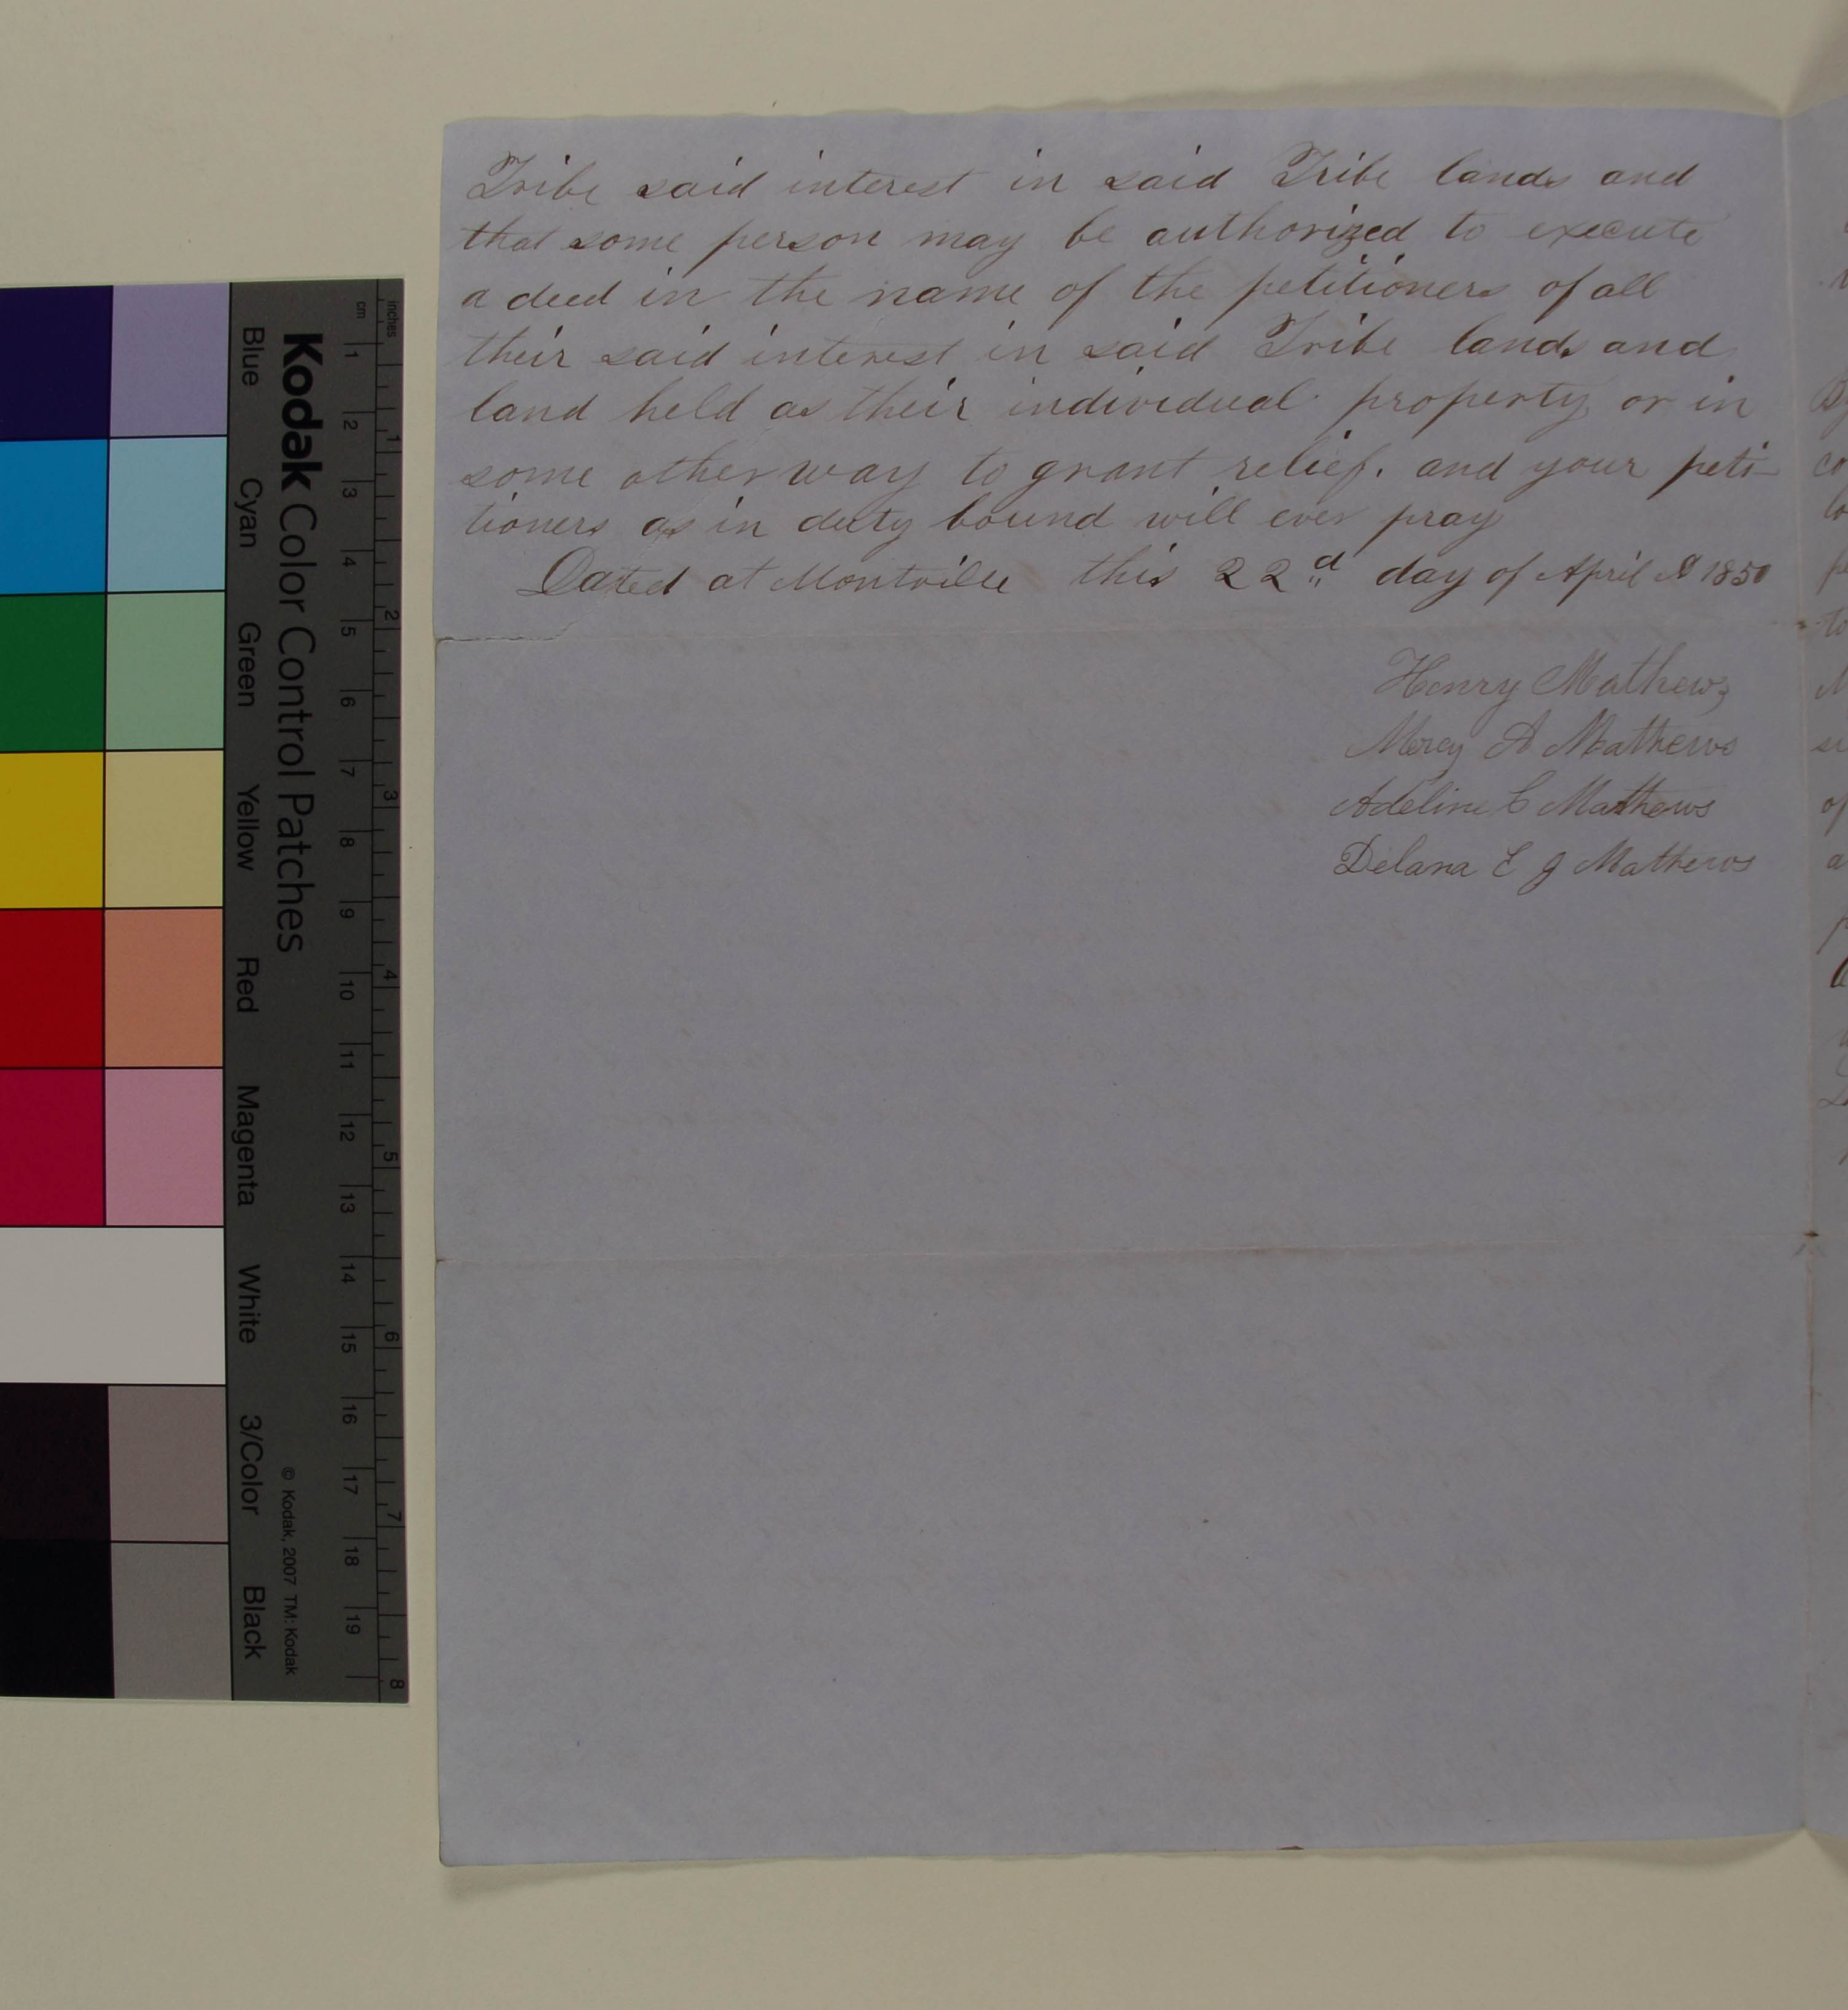 Tribe said interest in said Tribe lands and
that some person may be authorized to execute
a deed in the name of the petitioners of all
their said interest in said Tribe lands and
land held as their individual property or in
some other way to grant relief. and your peti-
tioners as in duty bound will ever pray
Dated at Montville this 22d day of April A 1850
Henry Mathews
Mercy A Mathews
Adeline C Mathews
Delana E G Mathews
Kodak Color Control Patches
© Kodak, 2007 TM: Kodak
Blue Cyan Green Yellow Red Magenta White 3/Color Black
cm 1 2 3 4 5 6 7 8 9 10 11 12 13 14 15 16 17 18 19
inches 1 2 3 4 5 6 7 8